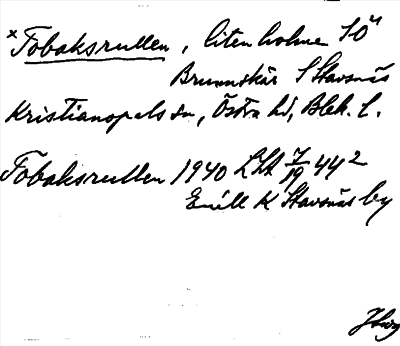 × Tobaksrullen, liten holme SÖ
Brunnskär S Stavsnäs
Kristianopels sn, Östra hd, Blek. l.
Tobaksrullen 1940 LHA 7/19 44²
Emil K Stavsnäs by